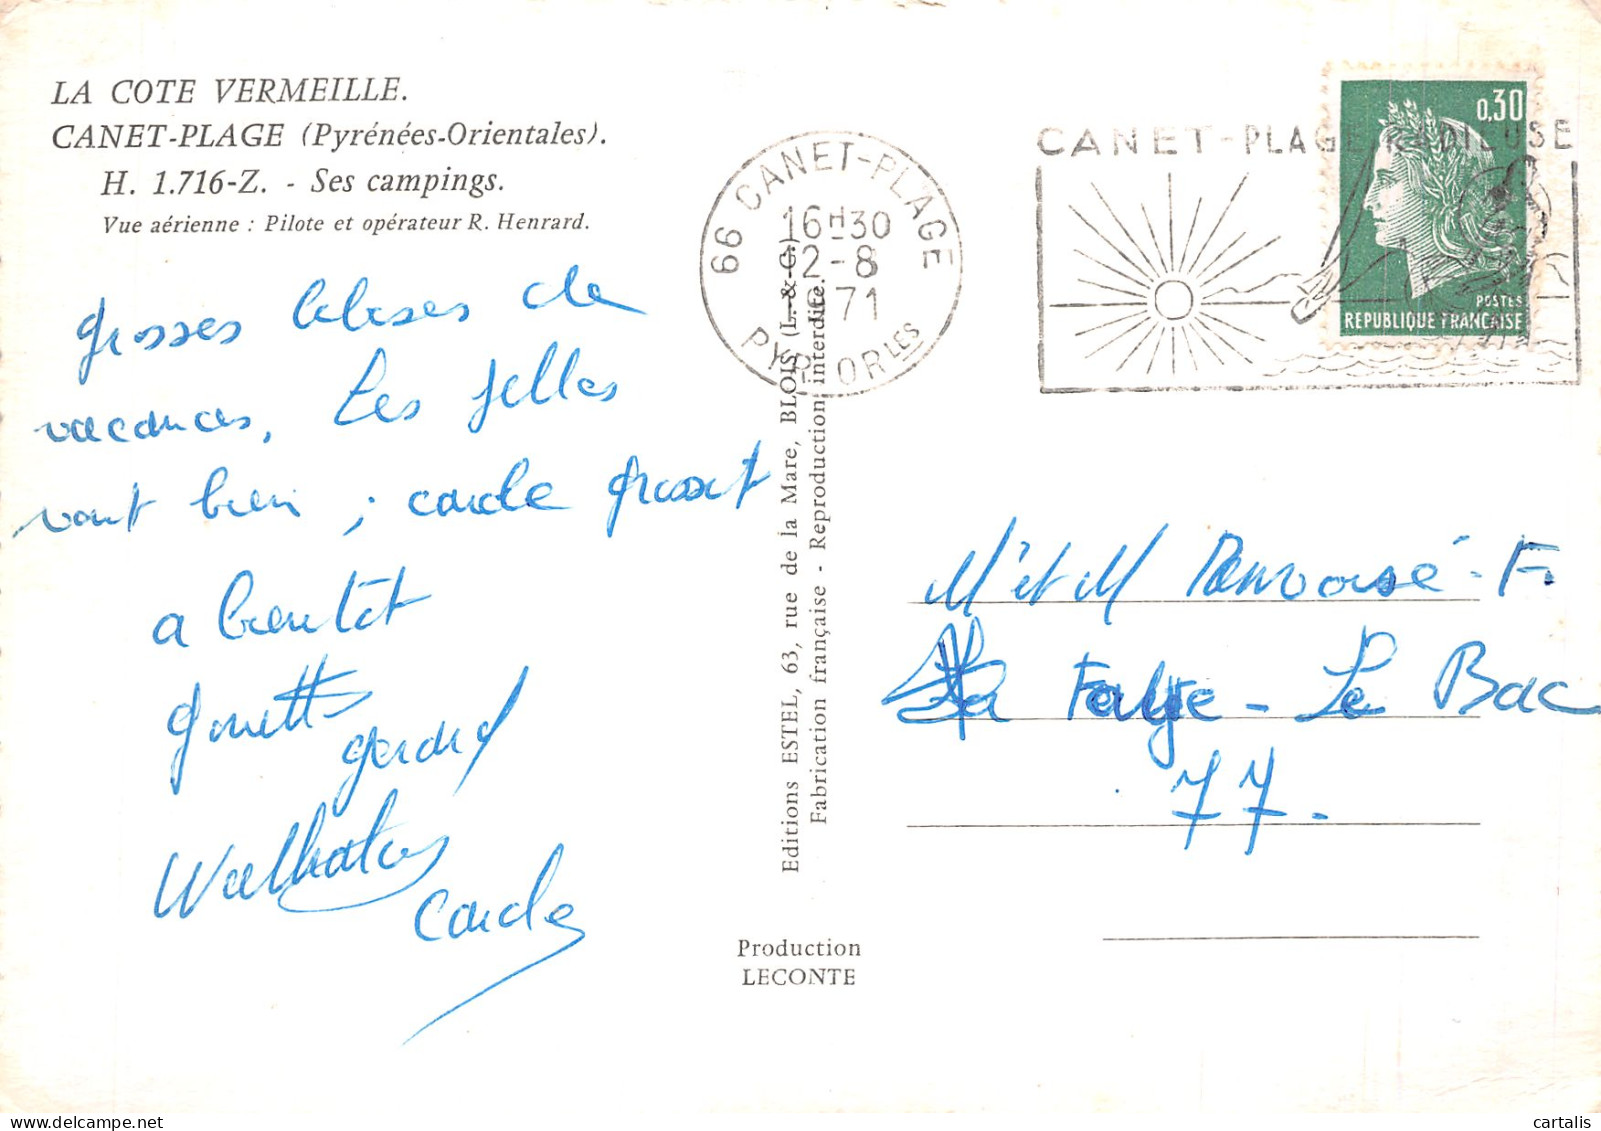 LA COTE VERMEILLE.
CANET-PLAGE (Pyrénées-Orientales).
H. 1.716-Z. - Ses campings.
Vue aérienne : Pilote et opérateur R. Henrard.
grosses bises de
vacances, Les filles
vont bien ; carole grossit
a bientot
ginette
gerard
carole
66 CANET-PLAGE
16H30
12-8
1971
PYR. ORLES
CANET-PLAGE RADIEUSE
0,30
POSTES
REPUBLIQUE FRANÇAISE
Editions ESTEL, 63, rue de la Mare, BLOIS (L.-&-C.)
Fabrication française - Reproduction interdite.
Production
LECONTE
M et M
La - Le Bac
77.
cartalis